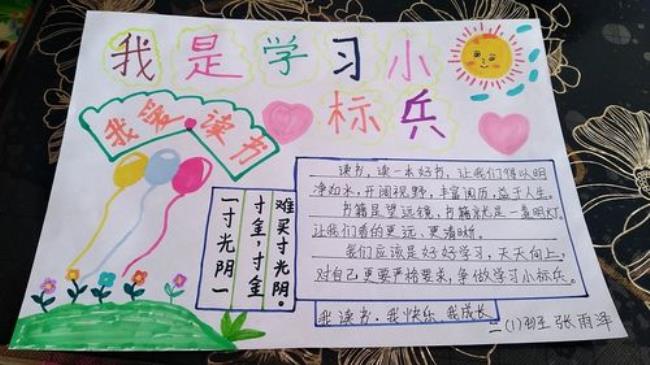 我是学习小
标兵
我爱读书
读书，读一本好书，让我们得以明
净如水，开阔视野，丰富阅历，益于人生。
书籍是望远镜，书籍就是一盏明灯。
让我们看的更远、更清晰。
我们应该是好好学习，天天向上，
对自己更要严格要求，争做学习小标兵。
一寸光阴一
寸金，寸金
难买寸光阴。
我读书，我快乐，我成长
二(1)班 张雨泽